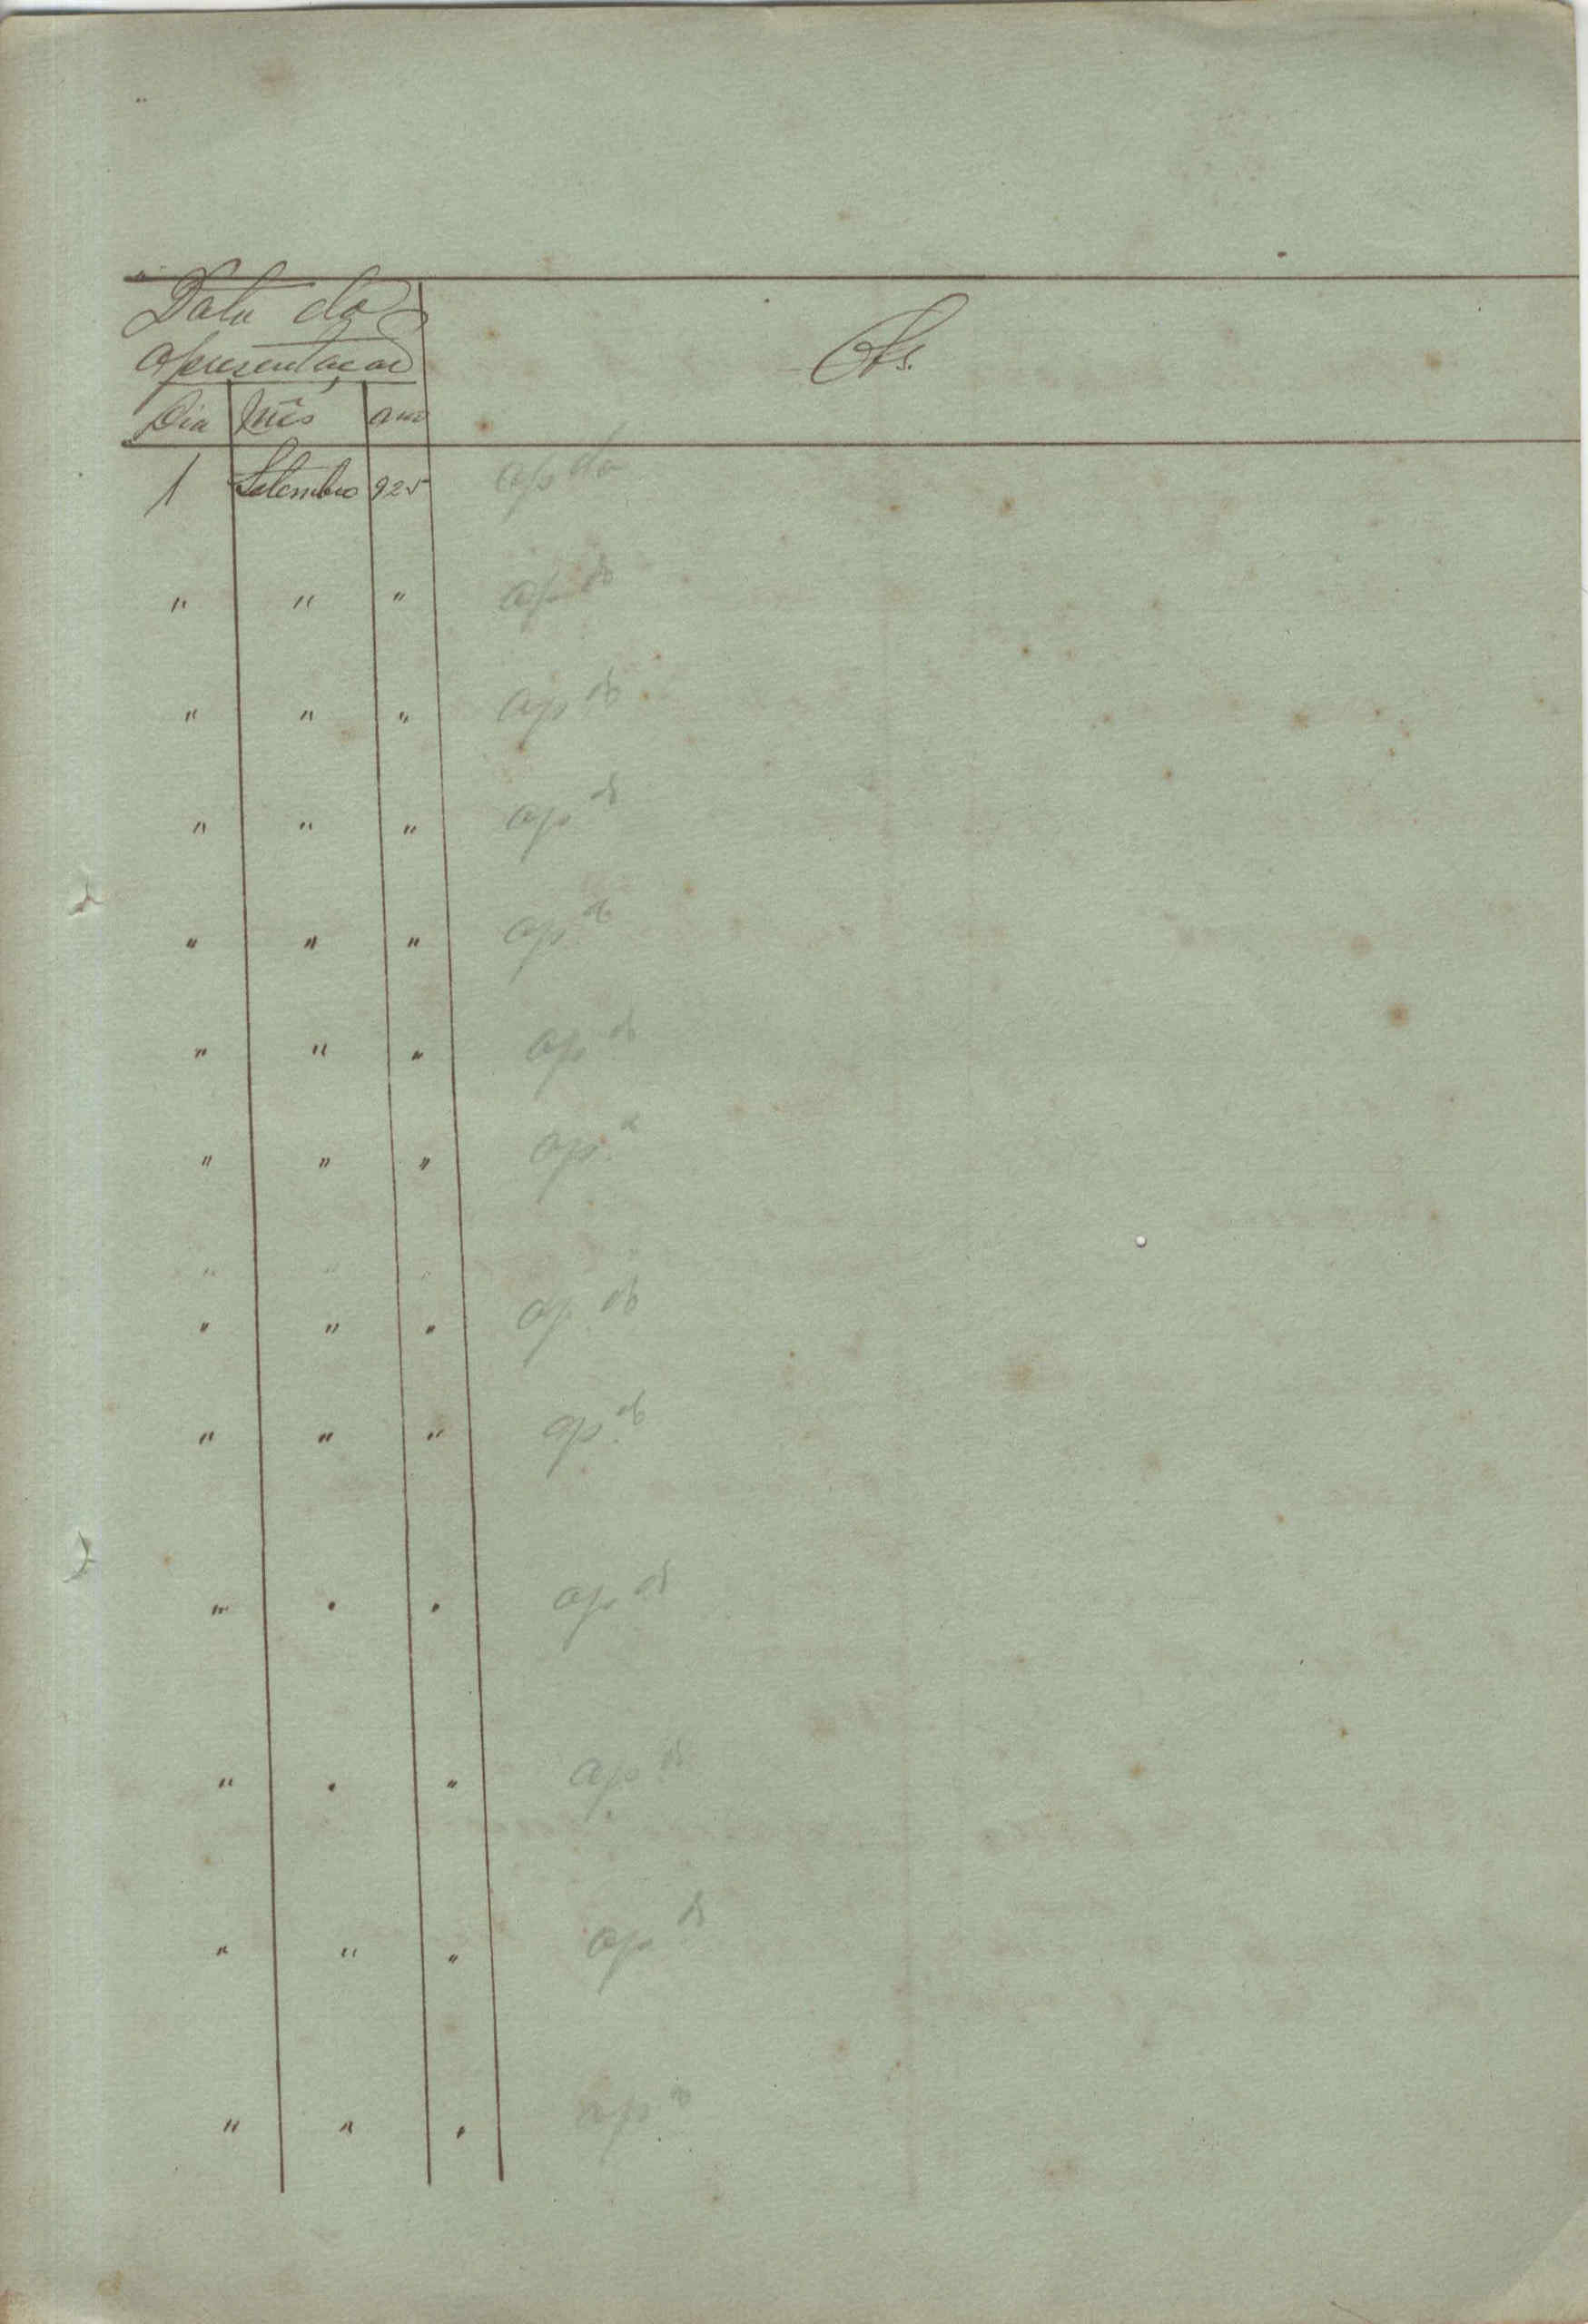 Data da Obs.
apresentação
Dia Mês ano
1 Setembro 925 ap do
" " " ap do
" " " ap do
" " " ap do
" " " ap. do
" " " ap do
" " " ap.
" " "
" " " ap. do
" " " ap. do
" " " ap do
" " " ap do
" " " ap do
" " " ap o